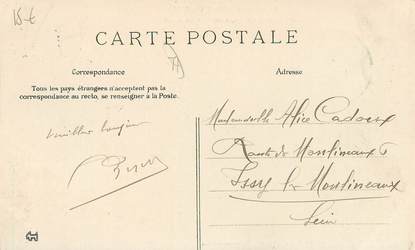 15-€
CARTE POSTALE
Correspondance
Adresse
Tous les pays étrangers n'acceptent pas la
correspondance au recto, se renseigner à la Poste.
Mademoiselle Alice Cadoux
Route de Moulineaux 6
Issy les Moulineaux
Seine